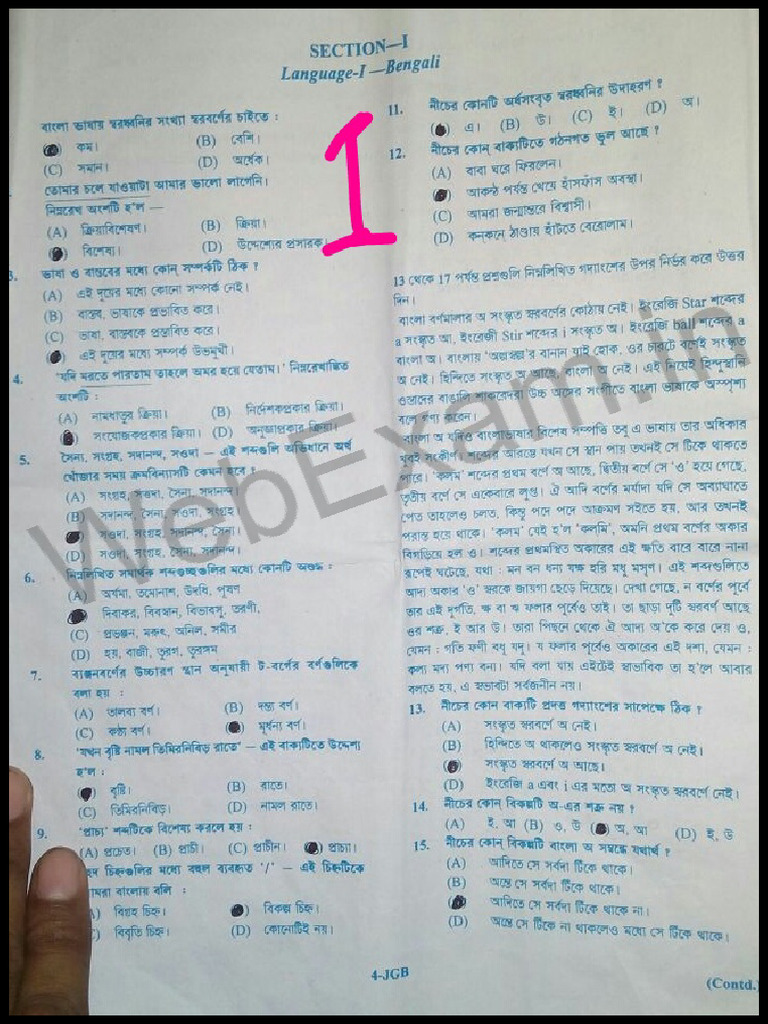 SECTION—I
Language-I —Bengali
বাংলা ভাষায় স্বরধ্বনির সংখ্যা স্বরবর্ণের চাইতে :
কম।
(B) বেশি।
(C) সমান।
(D) অর্ধেক।
তোমার চলে যাওয়াটা আমার ভালো লাগেনি।
নিম্নরেখ অংশটি হ'ল —
(A) ক্রিয়াবিশেষণ।
(B) ক্রিয়া।
বিশেষ্য।
(D) উদ্দেশ্যের প্রসারক।
3. ভাষা ও বাস্তবের মধ্যে কোন্ সম্পর্কটি ঠিক ?
(A) এই দুয়ের মধ্যে কোনো সম্পর্ক নেই।
(B) বাস্তব, ভাষাকে প্রভাবিত করে।
(C) ভাষা, বাস্তবকে প্রভাবিত করে।
এই দুয়ের মধ্যে সম্পর্ক উভমুখী।
4. 'যদি মরতে পারতাম তাহলে অমর হয়ে যেতাম।' নিম্নরেখাঙ্কিত
অংশটি :
(A) নামধাতুর ক্রিয়া।
(B) নির্দেশকপ্রকার ক্রিয়া।
সংযোজকপ্রকার ক্রিয়া।
(D) অনুজ্ঞাপ্রকার ক্রিয়া।
5. সৈন্য, সংগ্রহ, সদানন্দ, সওদা — এই শব্দগুলি অভিধানে অর্থ
খোঁজার সময় ক্রমবিন্যাসটি কেমন হবে ?
(A) সংগ্রহ, সওদা, সৈন্য, সদানন্দ।
(B) সদানন্দ, সৈন্য, সওদা, সংগ্রহ।
সওদা, সংগ্রহ, সদানন্দ, সৈন্য।
(D) সওদা, সংগ্রহ, সৈন্য, সদানন্দ।
6. নিম্নলিখিত সমার্থক শব্দগুচ্ছগুলির মধ্যে কোনটি অশুদ্ধ :
(A) অর্যমা, তমোনাশ, উদধি, পূষণ
দিবাকর, বিবস্বান, বিভাবসু, তরণী,
(C) প্রভঞ্জন, মরুৎ, অনিল, সমীর
(D) হয়, বাজী, তুরগ, তুরঙ্গম
7. ব্যঞ্জনবর্ণের উচ্চারণ স্থান অনুযায়ী ট-বর্গের বর্ণগুলিকে
বলা হয় :
(A) তালব্য বর্ণ।
(B) দন্ত্য বর্ণ।
(C) কণ্ঠ্য বর্ণ।
মূর্ধন্য বর্ণ।
8. 'যখন বৃষ্টি নামল তিমিরনিবিড় রাতে' — এই বাক্যটিতে উদ্দেশ্য
হ'ল :
বৃষ্টি।
(B) রাতে।
(C) তিমিরনিবিড়।
(D) নামল রাতে।
9. 'প্রাচ্য' শব্দটিকে বিশেষ্য করলে হয় :
(A) প্রচেত। (B) প্রাচী। (C) প্রাচীন। প্রাচ্যা।
চিহ্নগুলির মধ্যে বহুল ব্যবহৃত '/' — এই চিহ্নটিকে
বাংলায় বলি :
বিগ্রহ চিহ্ন।
বিকল্প চিহ্ন।
বিবৃতি চিহ্ন।
(D) কোনোটিই নয়।
I
11. নীচের কোনটি অর্ধসংবৃত স্বরধ্বনির উদাহরণ ?
এ। (B) উ। (C) ই। (D) অ।
12. নীচের কোন্ বাক্যটিতে গঠনগত ভুল আছে ?
(A) বাবা ঘরে ফিরলেন।
আকণ্ঠ পর্যন্ত খেয়ে হাঁসফাঁস অবস্থা।
(C) আমরা জন্মান্তরে বিশ্বাসী।
(D) কনকনে ঠাণ্ডায় হাঁটতে বেরোলাম।
13 থেকে 17 পর্যন্ত প্রশ্নগুলি নিম্নলিখিত গদ্যাংশের উপর নির্ভর করে উত্তর
দিন।
বাংলা বর্ণমালার অ সংস্কৃত স্বরবর্ণের কোঠায় নেই। ইংরেজি Star শব্দের
a সংস্কৃত আ, ইংরেজী Stir শব্দের i সংস্কৃত অ। ইংরেজি ball শব্দের a
বাংলা অ। বাংলায় 'অল্পস্বল্প'র বানান যাই হোক, ওর চারটে বর্ণেই সংস্কৃত
অ নেই। হিন্দিতে সংস্কৃত অ আছে, বাংলা অ নেই। এই নিয়েই হিন্দুস্থানি
ওস্তাদের বাঙালি শাকরেদরা উচ্চ অঙ্গের সংগীতে বাংলা ভাষাকে অস্পৃশ্য
বলে গণ্য করেন।
বাংলা অ যদিও বাংলাভাষার বিশেষ সম্পত্তি তবু এ ভাষায় তার অধিকার
খুবই সংকীর্ণ শব্দের আরম্ভে যখন সে স্থান পায় তখনই সে টিকে থাকতে
পারে। 'কলম' শব্দের প্রথম বর্ণে অ আছে, দ্বিতীয় বর্ণে সে 'ও' হয়ে গেছে,
তৃতীয় বর্ণে সে একেবারে লুপ্ত। ঐ আদি বর্ণের মর্যাদা যদি সে অব্যাঘাতে
পেত তাহলেও চলত, কিন্তু পদে পদে আক্রমণ সইতে হয়, আর তখনই
পরাস্ত হয়ে থাকে। 'কলম' যেই হ'ল 'কলমি', অমনি প্রথম বর্ণের অকার
বিগড়িয়ে হল ও। শব্দের প্রথমস্থিত অকারের এই ক্ষতি বারে বারে নানা
রূপেই ঘটেছে, যথা : মন বন ধন্য যক্ষ হরি মধু মসৃণ। এই শব্দগুলিতে
আদ্য অকার 'ও' স্বরকে জায়গা ছেড়ে দিয়েছে। দেখা গেছে, ন বর্ণের পূর্বে
তার এই দুর্গতি, ক্ষ বা ঋ ফলার পূর্বেও তাই। তা ছাড়া দুটি স্বরবর্ণ আছে
ওর শত্রু, ই আর উ। তারা পিছনে থেকে ঐ আদ্য অ'কে করে দেয় ও,
যেমন : গতি ফণী বধূ যদু। য ফলার পূর্বেও অকারের এই দশা, যেমন :
কল্য মদ্য পণ্য বন্য। যদি বলা যায় এইটেই স্বাভাবিক তা হ'লে আবার
বলতে হয়, এ স্বভাবটা সর্বজনীন নয়।
13. নীচের কোন বাক্যটি প্রদত্ত গদ্যাংশের সাপেক্ষে ঠিক ?
(A) সংস্কৃত স্বরবর্ণে অ নেই।
(B) হিন্দিতে অ থাকলেও সংস্কৃত স্বরবর্ণে অ নেই।
সংস্কৃত স্বরবর্ণে অ আছে।
(D) ইংরেজি a এবং i এর মতো অ সংস্কৃত স্বরবর্ণে নেই।
14. নীচের কোন্ বিকল্পটি অ-এর শত্রু নয় ?
(A) ই, আ (B) ও, উ অ, আ (D) ই, উ
15. নীচের কোন্ বিকল্পটি বাংলা অ সম্বন্ধে যথার্থ ?
(A) আদিতে সে সর্বদা টিকে থাকে।
(B) অন্তে সে সর্বদা টিকে থাকে।
আদিতে সে সর্বদা টিকে থাকে না।
(D) অন্তে সে টিকে না থাকলেও মধ্যে সে টিকে থাকে।
4-JGB
(Contd.)
WebExam.in